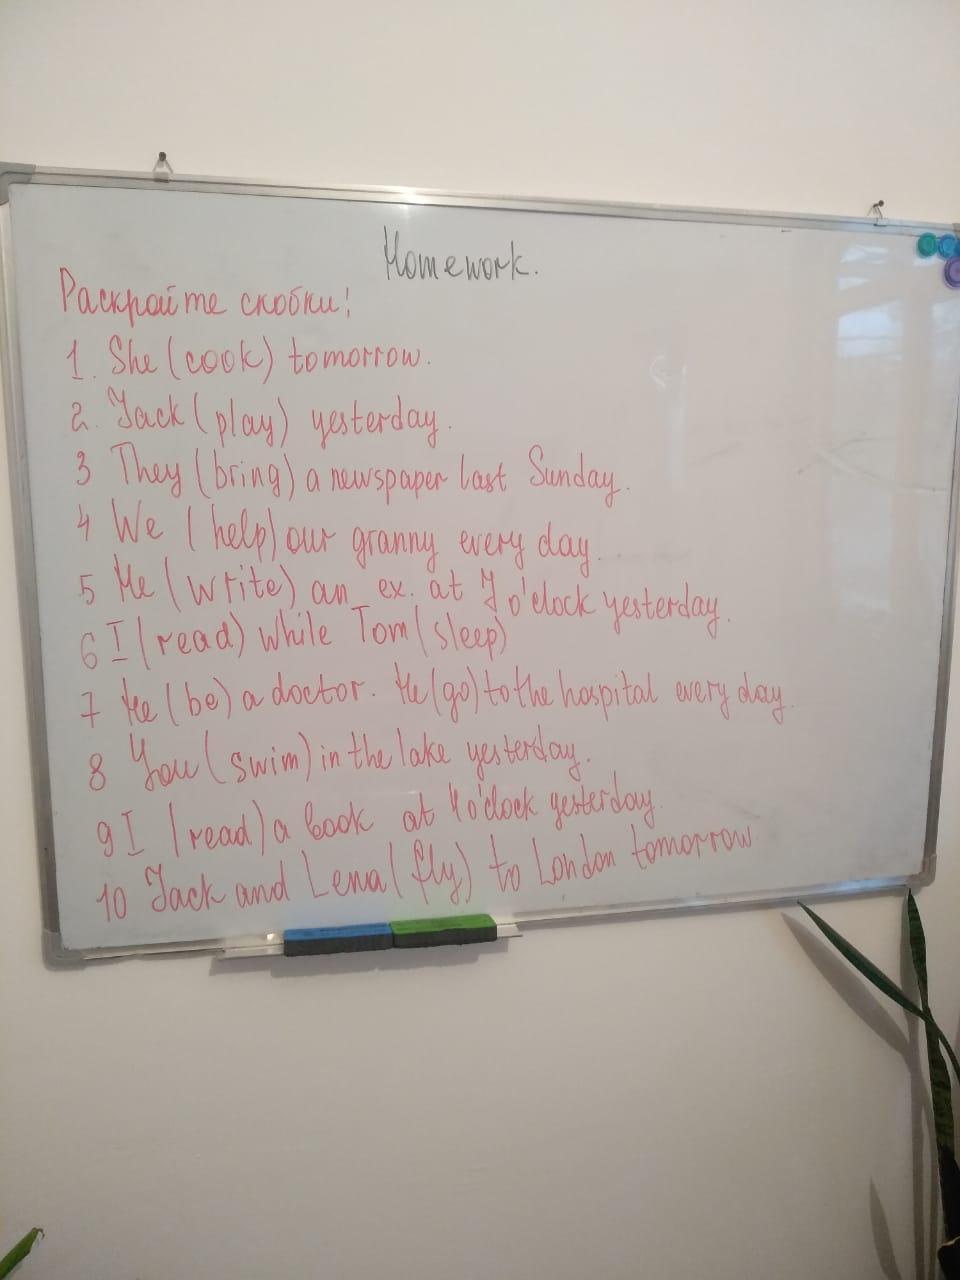 Homework.
Раскройте скобки!
1. She (cook) tomorrow.
2. Jack (play) yesterday.
3 They (bring) a newspaper last Sunday.
4 We (help) our granny every day.
5 He (write) an ex. at 7 o'clock yesterday.
6 I (read) while Tom (sleep)
7 He (be) a doctor. He (go) to the hospital every day.
8 You (swim) in the lake yesterday.
9 I (read) a book at 4 o'clock yesterday.
10 Jack and Lena (fly) to London tomorrow.